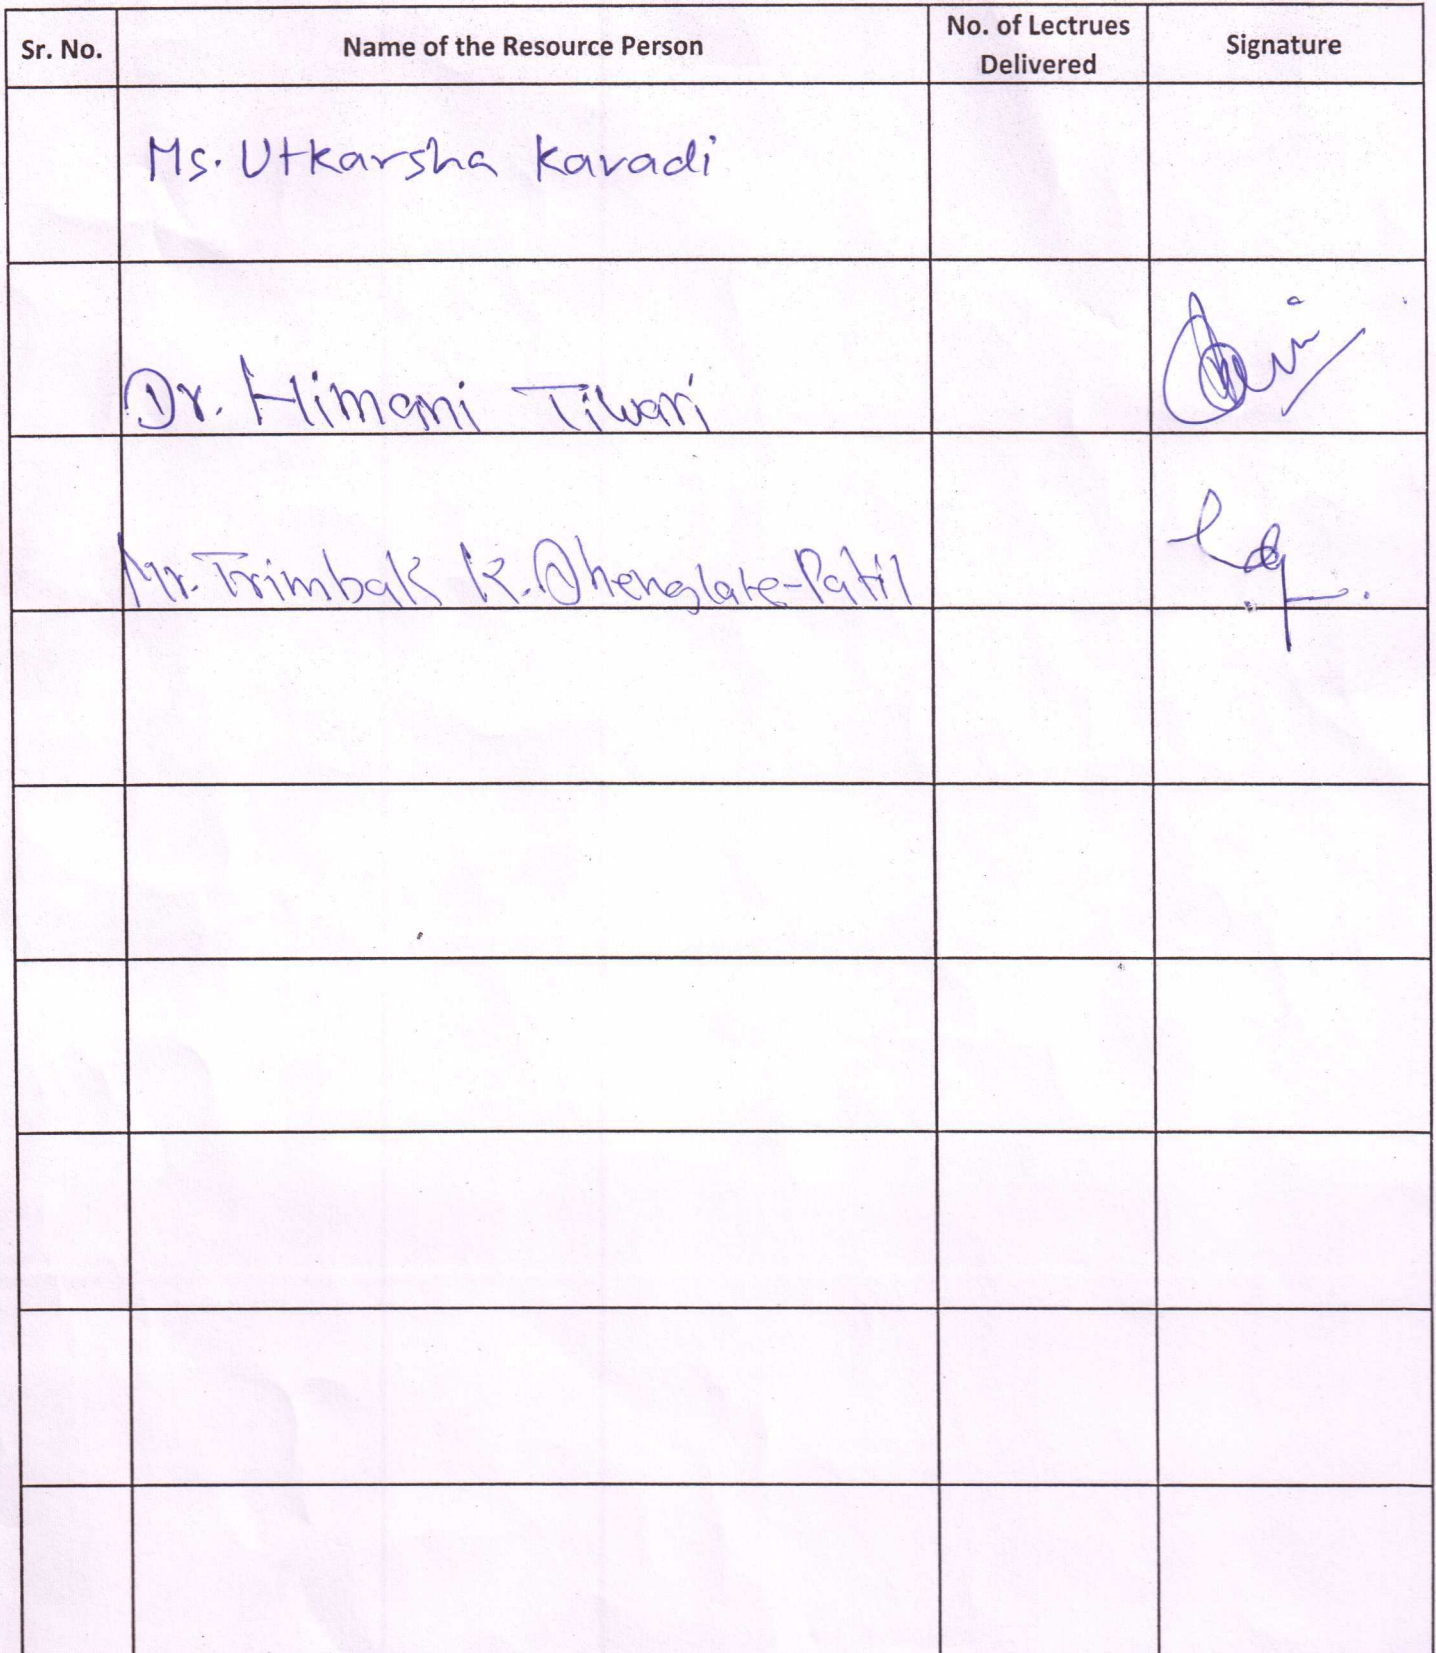 Sr. No. Name of the Resource Person No. of Lectrues Delivered Signature
Ms. Utkarsha Kavadi
Dr. Himani Tiwari
Mr. Trimbak K. Dhenglate-Patil